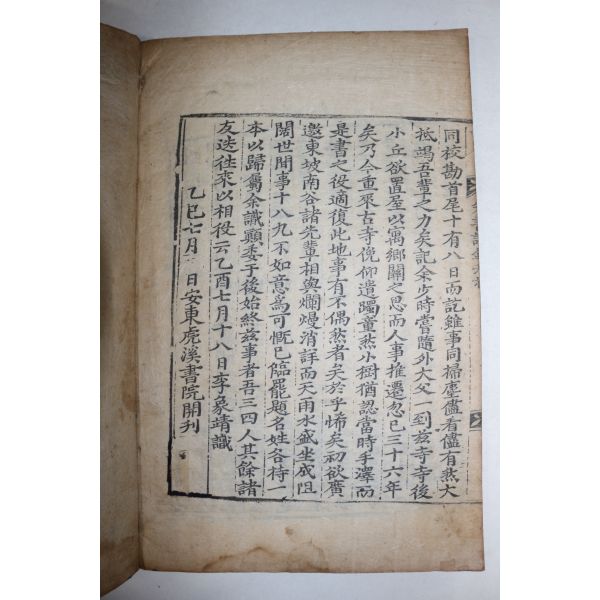 同校勘首尾十有八日而訖雖事同掃塵儘看儘有然大
抵竭吾輩之力矣記余少時嘗隨外大父一到玆寺寺後
小丘欲置屋以寓鄉關之思而人事推遷忽已三十六年
矣乃今重來古寺俛仰遺躅童然小岡猶認當時手澤而
是書之役適復此地事有不偶然者矣於乎悕矣初欲廣
邀東坡南谷諸先輩相與爛熳消詳而天雨水盛坐成阻
闊世間事十八九不如意爲可慨已臨罷題名姓各待一
本以歸屬余識顚委于後始終玆事者吾三四人其餘諸
友迭往來以相役云乙酉七月十八日李象靖識
乙巳七月 日安東虎溪書院開刊